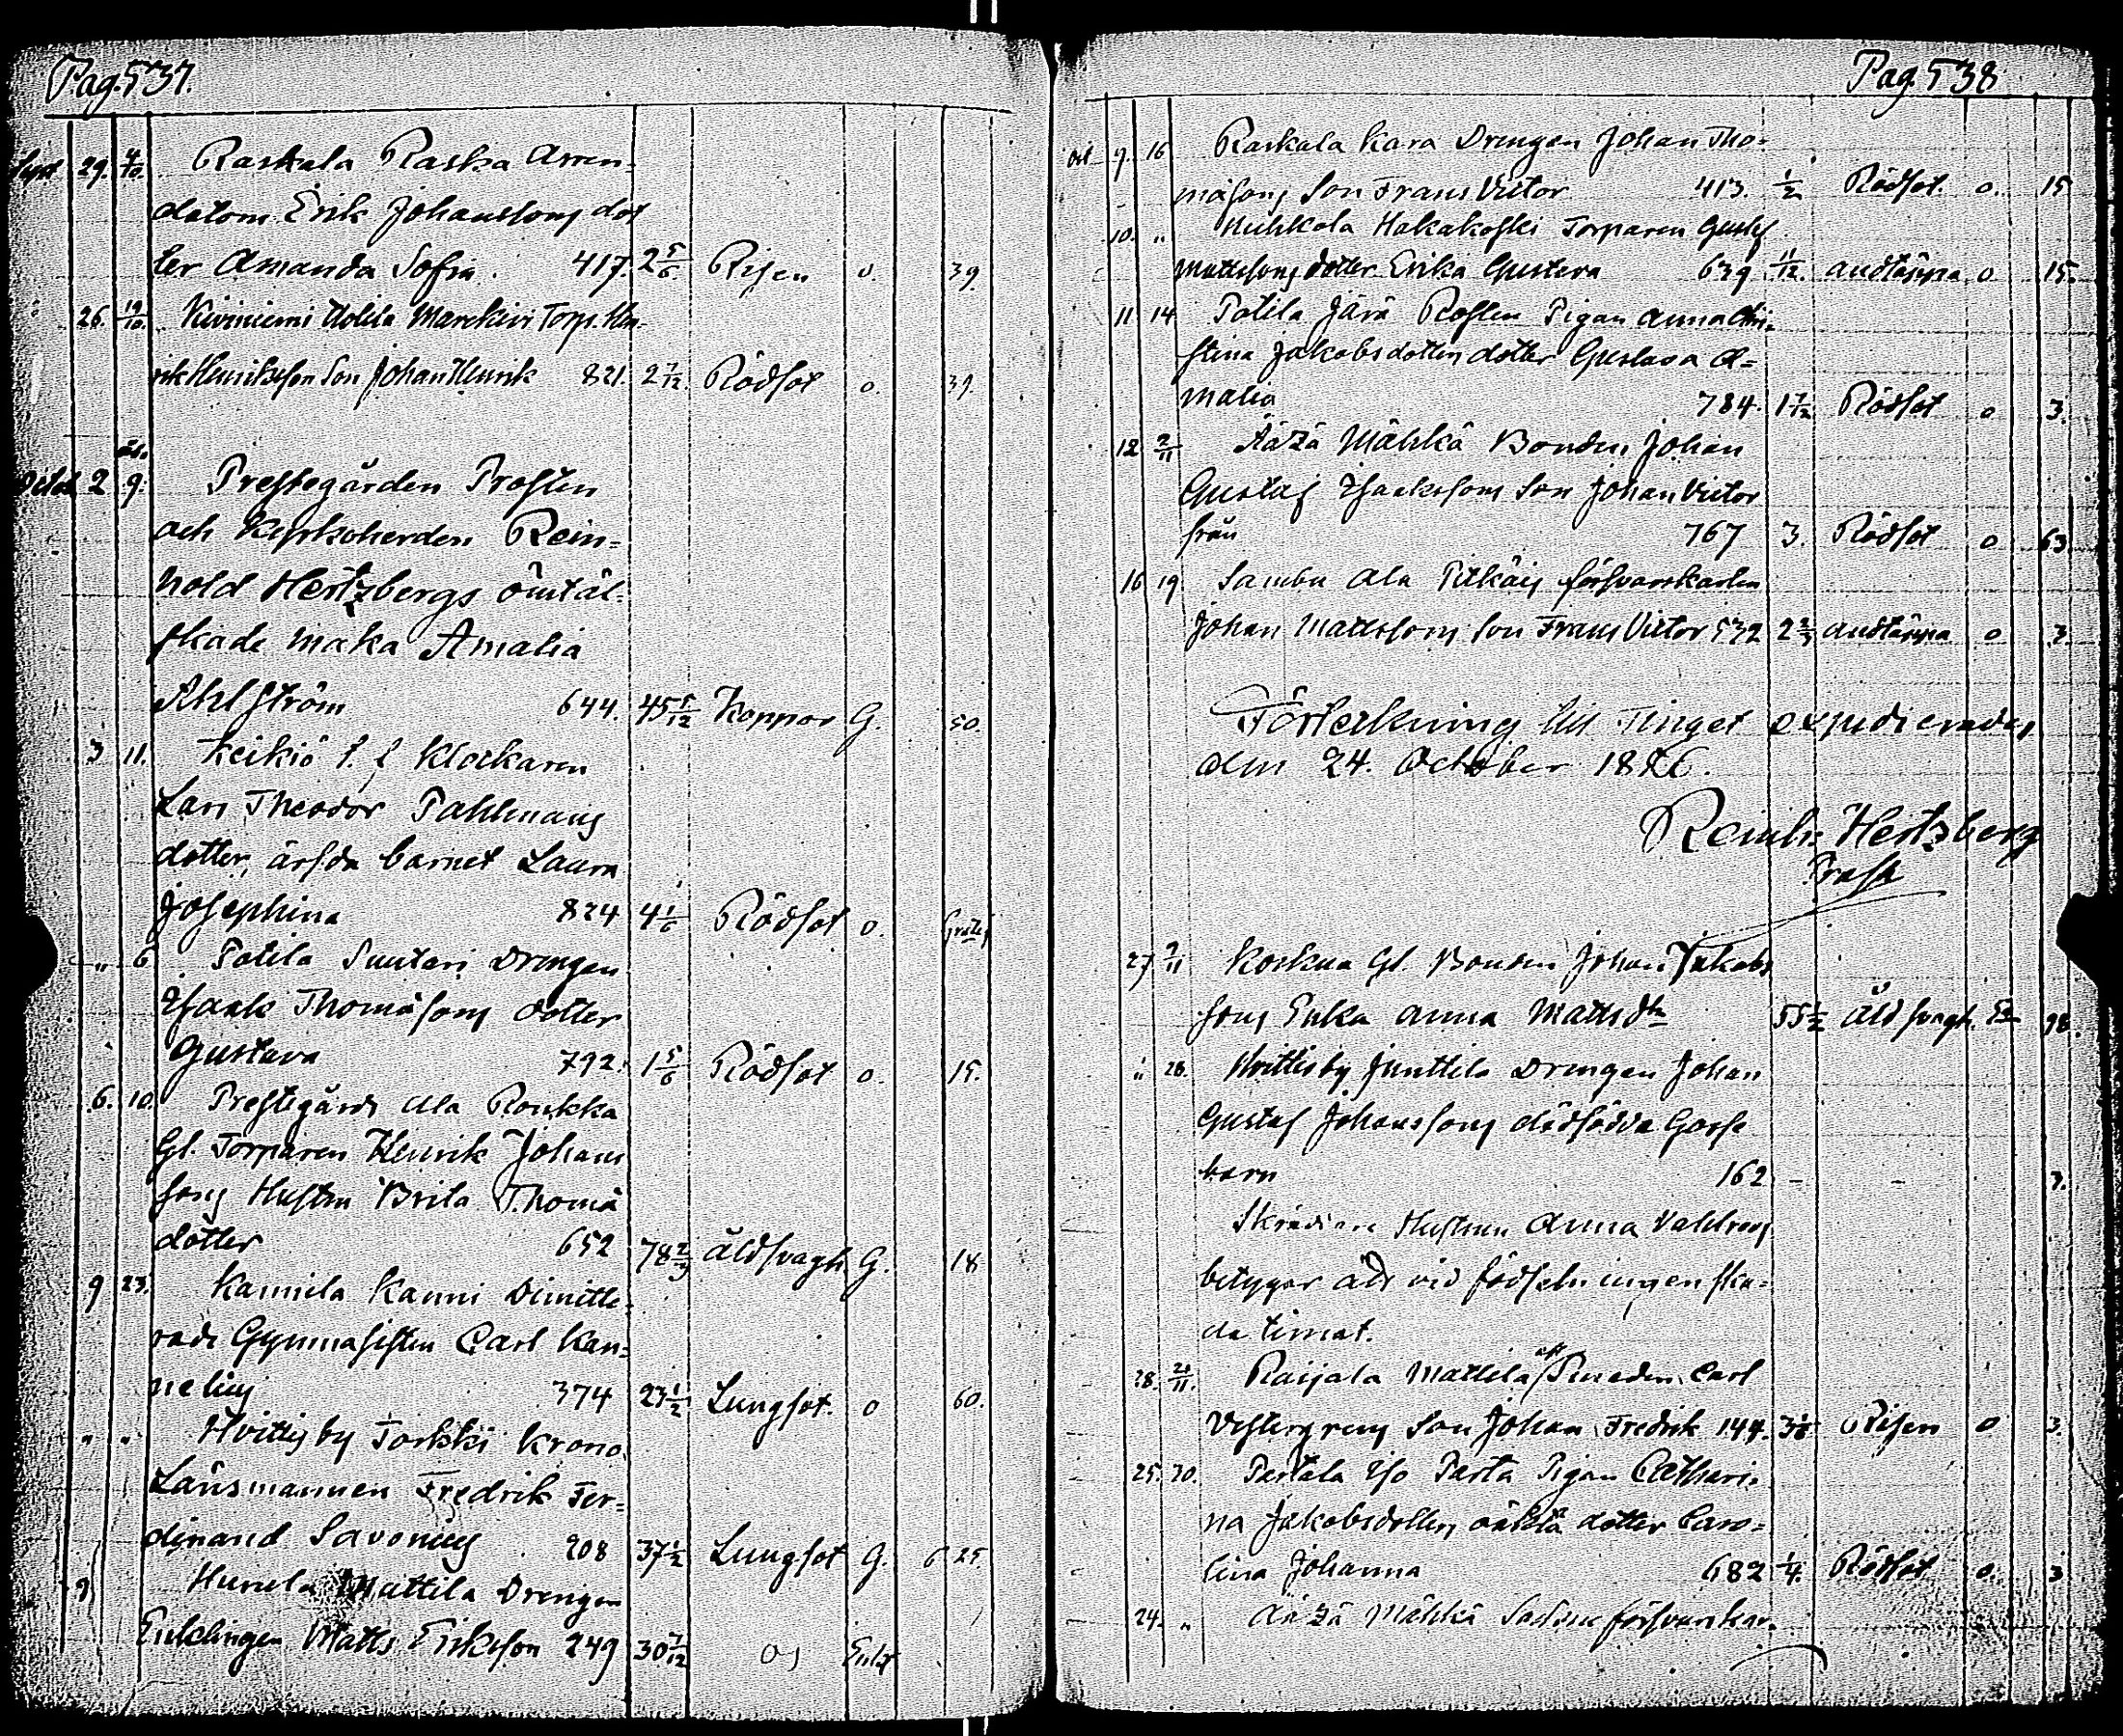 Pag. 537.
Sept 29. 4/10. Raskala Raska Arren-
datorn Erik Johanssons dot
ter Amanda Sofia. 417. 2 5/6 Risen o. 39.
26. 19/10. Kiviniemi Uotila Torp. Hen-
rik Henriksson Son Johan Henrik 821. 2 7/12 Rödsot o. 39.
Octob 2 9. Prestegården Prosten
och Kyrkoherden Rein-
hold Hertzbergs ömtäl-
skade maka Amalia
Ahlström 644. 45 5/12 Koppor G. 50.
3 11. Keikiö f. f Klockaren
Lars Theodor Pahlmans
dotter, ärfda barnet Laura
Josephina 824 4 1/6 Rödsot o. gratis
„ 6 Potila Suutari Drengen
Isaak Thomassons dotter
Gustava 792. 1 5/6 Rödsot o. 15.
6. 10. Prestegårds Ala Roukka
Gl. Torparen Henrik Johans
sons Hustru Brita Thomä
dotter 652 78 2/3 Åldsvagh G. 18
9 23. Kannila Kanni Dimitte-
rade Gymnasisten Carl Kan-
nelius 374 23 1/2 Lungsot. o 60.
„ „ Hvittisby Torkki Krono
Länsmannen Fredrik Fer-
dinand Savonius 208 37 1/2 Lungsot G. 6 25.
9 Hunela Mattila Drengen
Enklingen Matts Eriksson 249 30 7/12 Enkl
Pag. 538
Oct 9. 16 Raskala Kara Drengen Johan Tho-
massons Son Frans Victor 413. 1/2 Rödsot. o. 15
10. „ Huhkola Hakakoski Torparen Gustaf
Mattssons dotter Erika Gustava 639 11/12 andtäppa o 15.
11 14 Potila Järä Pigan Anna Chri-
stina Jakobsdotters dotter Gustava A-
malia 784. 1 7/12 Rödsot o 3.
12 2/11 Äätzä Mähkä Bonden Johan
Gustaf Isaakssons Son Johan Victor
från 767 3. Rödsot o 63
16 19 Sambu Ala Pitkäis försvarskarlen
Johan Mattssons Son Frans Victor 532 2 2/3 andtäppa o 3.
Förtekning till Tinget expedierades
den 24. October 1826.
Reinh. Hertzberg
Prost
27 9/11 Koskua Gl. Bonden Johan Jakobs
sons Enka Anna Mattsdtr 55 1/2 Åldsvagh. En 98.
„ 28. Hvittisby Junttila Drengen Johan
Gustaf Johanssons dödfödda Gosse
barn 162 - - 3.
Hustrun Anna Vahlroos
betygar att vid födseln ingen ska-
da timat.
28. 21/11. Raijala Mattila Carl
Vestergrens Son Johan Fredrik 144. 3 1/6 Risen o 3.
25. 30. Partala Iso Parta Pigan Cathari-
na Jakobsdotters oäkta dotter Caro-
lina Johanna 682 1/4. Rödsot o. 3
24. „ Äätzä Mähkä försvarskar-